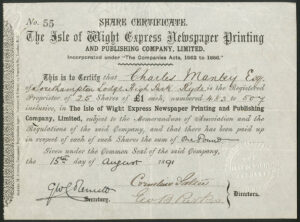 No. 55
SHARE CERTIFICATE.
The Isle of Wight Express Newspaper Printing
AND PUBLISHING COMPANY, LIMITED.
Incorporated under "The Companies Acts, 1862 to 1886."
This is to Certify that Charles Manley Esq
of Southampton Lodge High Park Ryde is the Registered
Proprietor of 25 Shares of £1 each, numbered 483 to 507
inclusive, in The Isle of Wight Express Newspaper Printing and Publishing
Company, Limited, subject to the Memorandum of Association and the
Regulations of the said Company, and that there has been paid up
in respect of each of such Shares the sum of One Pound
Given under the Common Seal of the said Company,
the 15th day of August 1891
Secretary.
Directors.